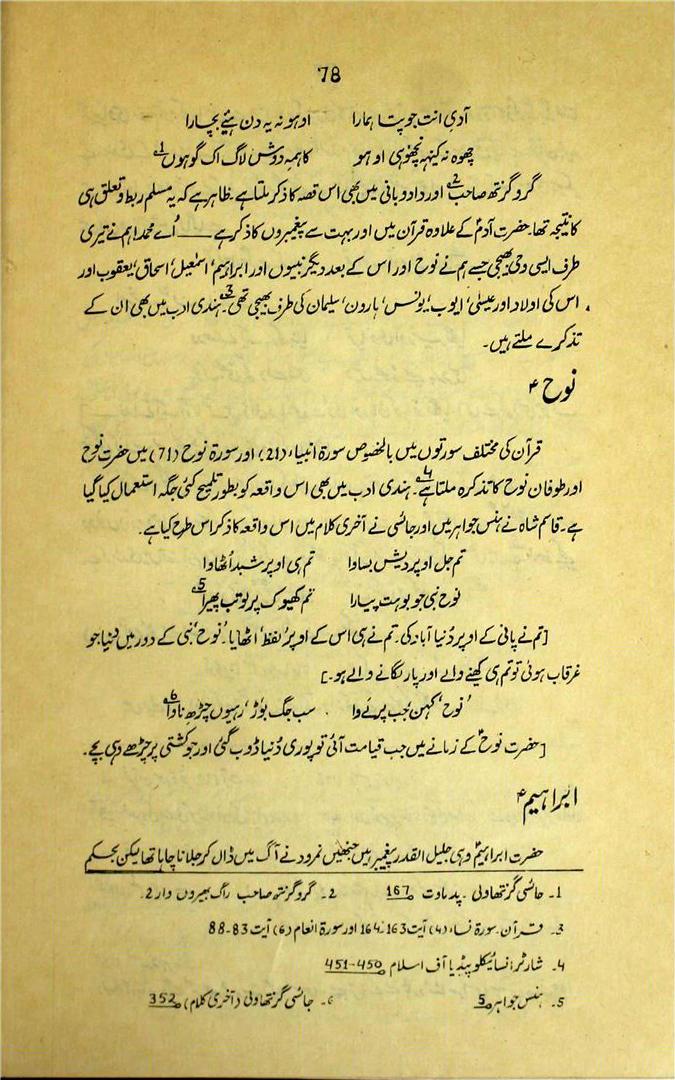 78
آدی انت جو پتا ہمارا اوہو نہ یہ دن ہیے بچارا
چھوہ نہ کینہہ نچھوہی اوہو کاہمہ دوش لاگ اک گوہوں1ؔ
گروگرنتھ صاحب2ؔ اور دادو بانی میں بھی اس قصہ کا ذکر ملتا ہے۔ ظاہر ہے کہ یہ مسلم ربط و تعلق ہی
کا نتیجہ تھا۔ حضرت آدمؑ کے علاوہ قرآن میں اور بہت سے پیغمبروں کا ذکر ہے —— اُے محمدؐ! ہم نے تیری
طرف ایسی وحی بھیجی جسے ہم نے نوح اور اس کے بعد دیگر نبیوں اور ابراہیم، اسمٰعیل، اسحاق، یعقوب اور
اس کی اولاد اور عیسٰی، ایوب، یونس، ہارون، سلیمان کی طرف بھیجی تھی3ؔ۔ ہندی ادب میں بھی ان کے
تذکرے ملتے ہیں۔
نوحؑ
قرآن کی مختلف سورتوں میں بالخصوص سورۃ انبیاء (21) اور سورۃ نوح (71) میں حضرت نوح
اور طوفان نوح کا تذکرہ ملتا ہے4ؔ۔ ہندی ادب میں بھی اس واقعہ کو بطور تلمیح کئی جگہ استعمال کیا گیا
ہے۔ قاسم شاہ نے ہنس جواہر میں اور جائسی نے آخری کلام میں اس واقعہ کا ذکر اس طرح کیا ہے۔
تم جل اوپر دیش بساوا تم ہی اوپر شبد اُٹھاوا
نوح نبی جو بوہت پیارا تم کھیوک پر لو تب پھیرا5ؔ
[تم نے پانی کے اوپر دُنیا آباد کی۔ تم نے ہی اس کے اوپر ’لفظ‘ اٹھایا۔ ’نوح‘ نبی کے دور میں دنیا جو
غرقاب ہوئی تو تم ہی کھینے والے اور پار لگانے والے ہو۔]
’نوح‘ کہن جب پرلے وا سب جگ بُوڑ رہیوں چڑھ ناوا6ؔ
[حضرت نوحؑ کے زمانے میں جب قیامت آئی تو پوری دُنیا ڈوب گئی اور جو کشتی پر چڑھے وہی بچے۔
ابراہیمؑ
حضرت ابراہیمؑ وہی جلیل القدر پیغمبر ہیں جنھیں نمرود نے آگ میں ڈال کر جلانا چاہا تھا لیکن بحکم
1۔ جائسی گرنتھاولی۔ پدماوت 167 2۔ گروگرنتھ صاحب راگ بھیروں وار 2۔
3۔ قرآن۔ سورۃ نساء (4) آیت 163-164 اور سورۃ انعام (6) آیت 83-88
4۔ شارٹر انسائیکلوپیڈیا آف اسلام 450-451
5۔ ہنس جواہر 5 6۔ جائسی گرنتھاولی (آخری کلام) 352